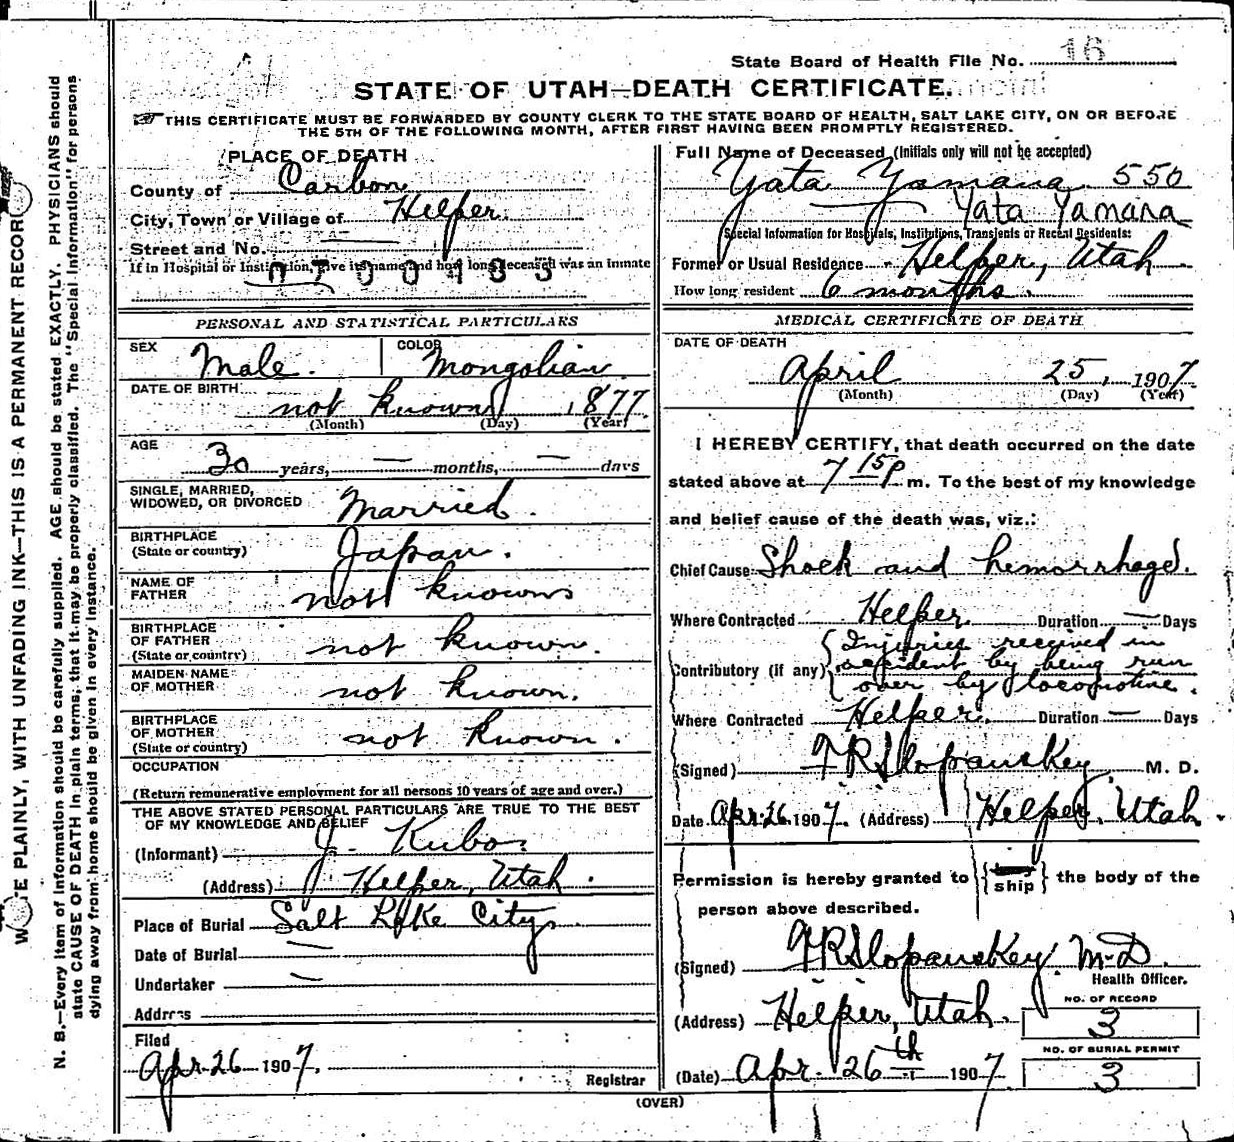 State Board of Health File No. 16
STATE OF UTAH—DEATH CERTIFICATE.
THIS CERTIFICATE MUST BE FORWARDED BY COUNTY CLERK TO THE STATE BOARD OF HEALTH, SALT LAKE CITY, ON OR BEFORE
THE 5TH OF THE FOLLOWING MONTH, AFTER FIRST HAVING BEEN PROMPTLY REGISTERED.
PLACE OF DEATH
County of Carbon
City, Town or Village of Helper.
Street and No. —
If in Hospital or Institution, give its name and how long deceased was an inmate
0700485
PERSONAL AND STATISTICAL PARTICULARS
SEX Male. COLOR Mongolian.
DATE OF BIRTH not known, 1877.
(Month) (Day) (Year)
AGE
30 years, — months, — days
SINGLE, MARRIED,
WIDOWED, OR DIVORCED Married.
BIRTHPLACE
(State or country) Japan.
NAME OF
FATHER not known
BIRTHPLACE
OF FATHER
(State or country) not known.
MAIDEN NAME
OF MOTHER not known.
BIRTHPLACE
OF MOTHER
(State or country) not known.
OCCUPATION
(Return remunerative employment for all persons 10 years of age and over.)
THE ABOVE STATED PERSONAL PARTICULARS ARE TRUE TO THE BEST
OF MY KNOWLEDGE AND BELIEF
(Informant) J. Kubo.
(Address) Helper, Utah.
Place of Burial Salt Lake City.
Date of Burial —
Undertaker —
Address
Filed
Apr. 26 1907.
Registrar
Full Name of Deceased (Initials only will not be accepted)
Yata Yamana 550
Yata Yamana
Special Information for Hospitals, Institutions, Transients or Recent Residents:
Former or Usual Residence Helper, Utah
How long resident 6 months.
MEDICAL CERTIFICATE OF DEATH
DATE OF DEATH
April 25, 1907
(Month) (Day) (Year)
I HEREBY CERTIFY, that death occurred on the date
stated above at 7 15 P m. To the best of my knowledge
and belief cause of the death was, viz.:
Chief Cause Shock and hemorrhage.
Where Contracted Helper. Duration — Days
Contributory (if any) { Injuries received in
accident by being run
over by locomotive.
Where Contracted Helper. Duration — Days
(Signed) F R Slopanskey, M. D.
Date Apr. 26 1907. (Address) Helper, Utah.
Permission is hereby granted to { ship } the body of the
person above described.
(Signed) F R Slopanskey, M.D.
Health Officer.
(Address) Helper, Utah.
NO. OF RECORD
3
NO. OF BURIAL PERMIT
3
(Date) Apr. 26th 1907
(OVER)
PLAINLY, WITH UNFADING INK—THIS IS A PERMANENT RECORD
N. B.—Every item of information should be carefully supplied. AGE should be stated EXACTLY. PHYSICIANS should
state CAUSE OF DEATH in plain terms, that it may be properly classified. The "Special Information" for persons
dying away from home should be given in every instance.